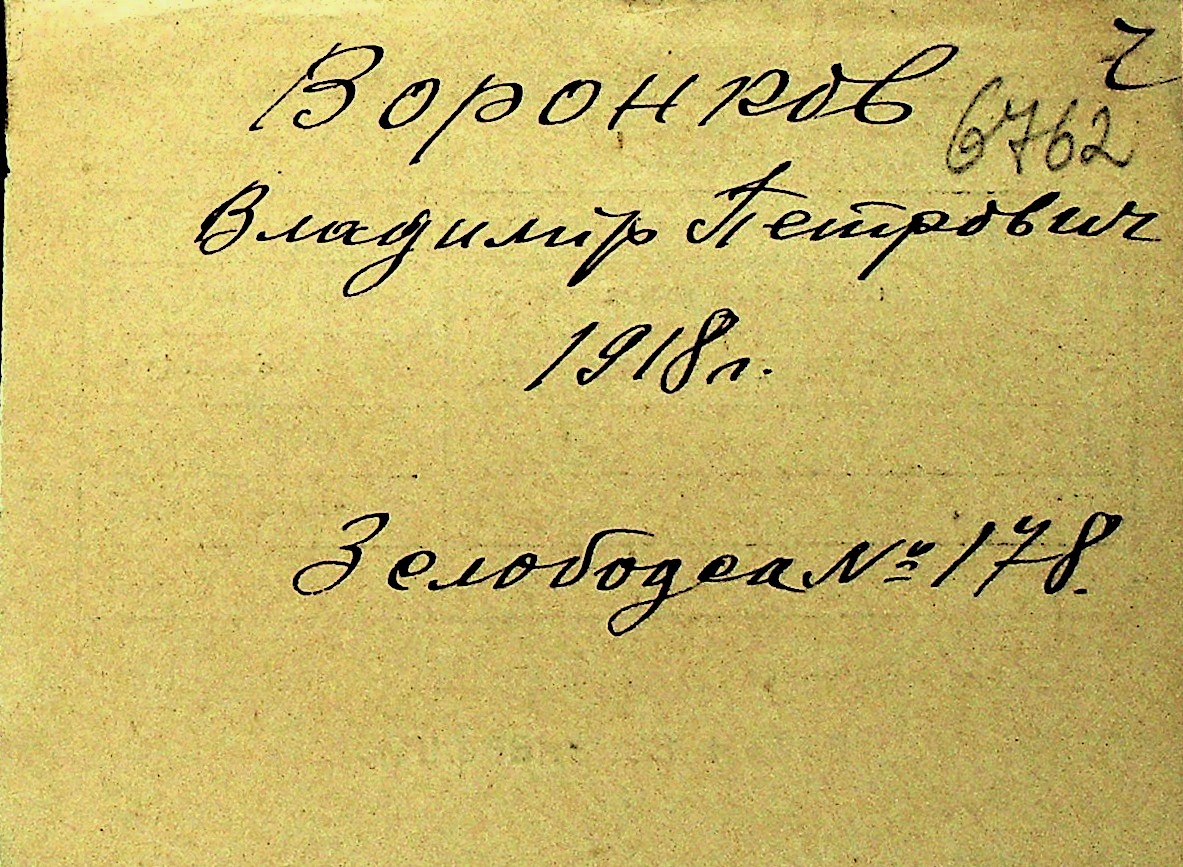 Воронков
6762
Владимир Петрович
1918 г.
№ 178.